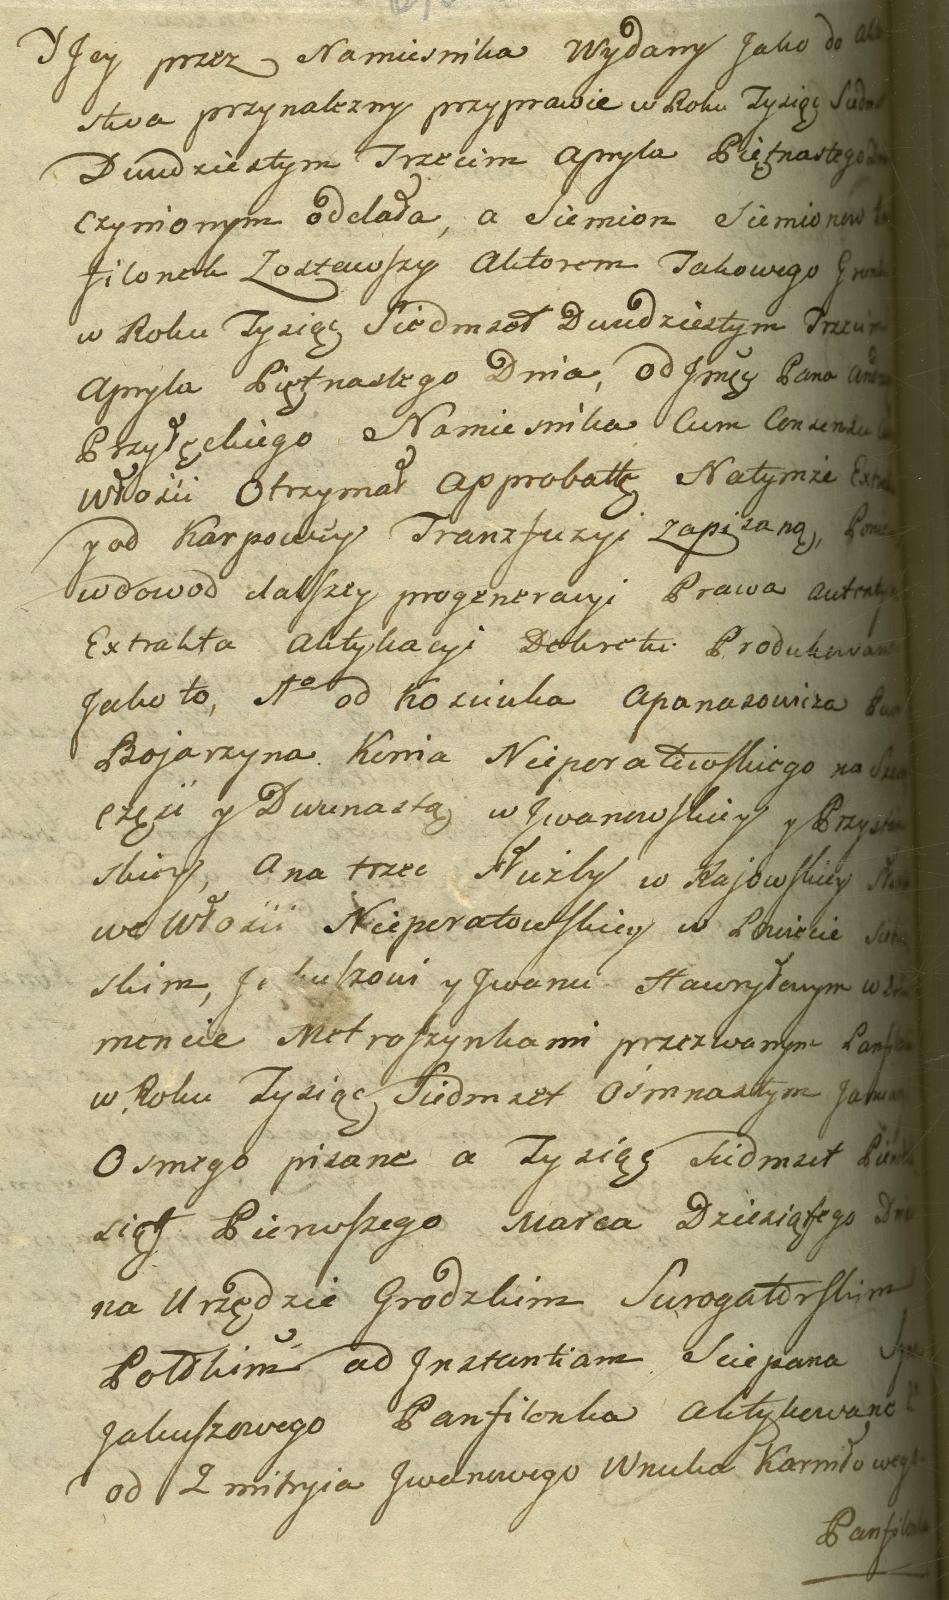 Y Jey przez Namiesnika Wydany Jako do
stwa przynalezny przyprawie w Roku Tysiąc Siedmset
Dwudziestym Trzecim Apryla Piętnastego
czynionym odclada, a Siemion Siemionow
filonek Zostawszy Aktorem Takowego
w Roku Tysiąc Siedmset Dwudziestym Trzecim
Apryla Piętnastego Dnia, od Jmcy Pana
Przyłęckiego Namiesnika Cum Consensu
Włosci Otrzymał Approbattę Natymże
y od Karpowey Tranzfuzyi zapisaną,
wdowod dalszey progeneracyi Prawa
Extrakta Aktykacyi Dekretu Produkowane
Jako to, A° od Kosciuka Apanasowicza
Bojarzyna Kmia Nieporatowskiego na
częsci y Dwunastą w Jwanowskiey y
skiey, A na trzec Służby w Rajowskiey
we Włosci Nieporatowskiey w Powiecie
skim, y Jwanu Hawryłowym w
mencie Metroszynkami przezwanym
w Roku Tysiąc Siedmset Osmnastym
Osmego pisane a Tysiąc Siedmset
siąt Pierwszego Marca Dziesiątego Dnia
na Urzędzie Grodzkim Surogatorskim
Połockim ad Jnstantiam Sciepana
Jakuszowego Panfilonka Aktykowane
od Zmitryia Jwanowego Wnuka Karniłowego
Panfilonka